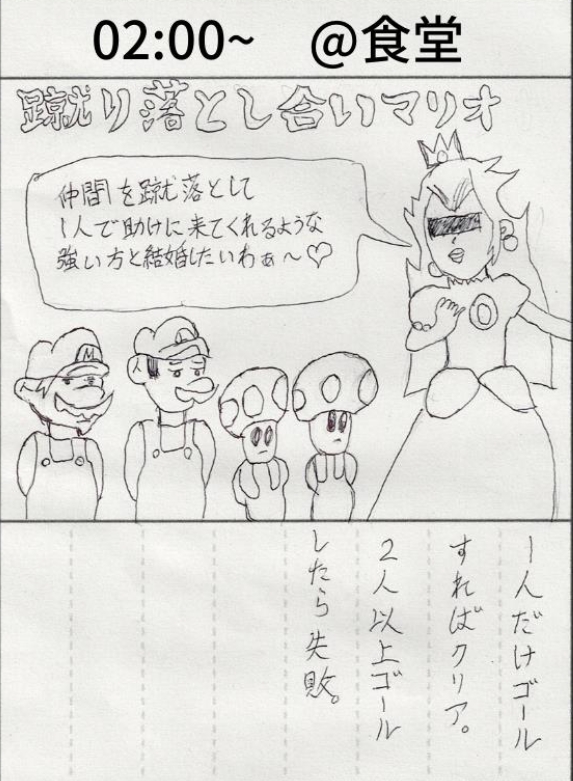 02:00~ @食堂
蹴り落とし合いマリオ
仲間を蹴落として
1人で助けに来てくれるような
強い方と結婚したいわぁ～♡
M
1人だけゴール
すればクリア。
2人以上ゴール
したら失敗。